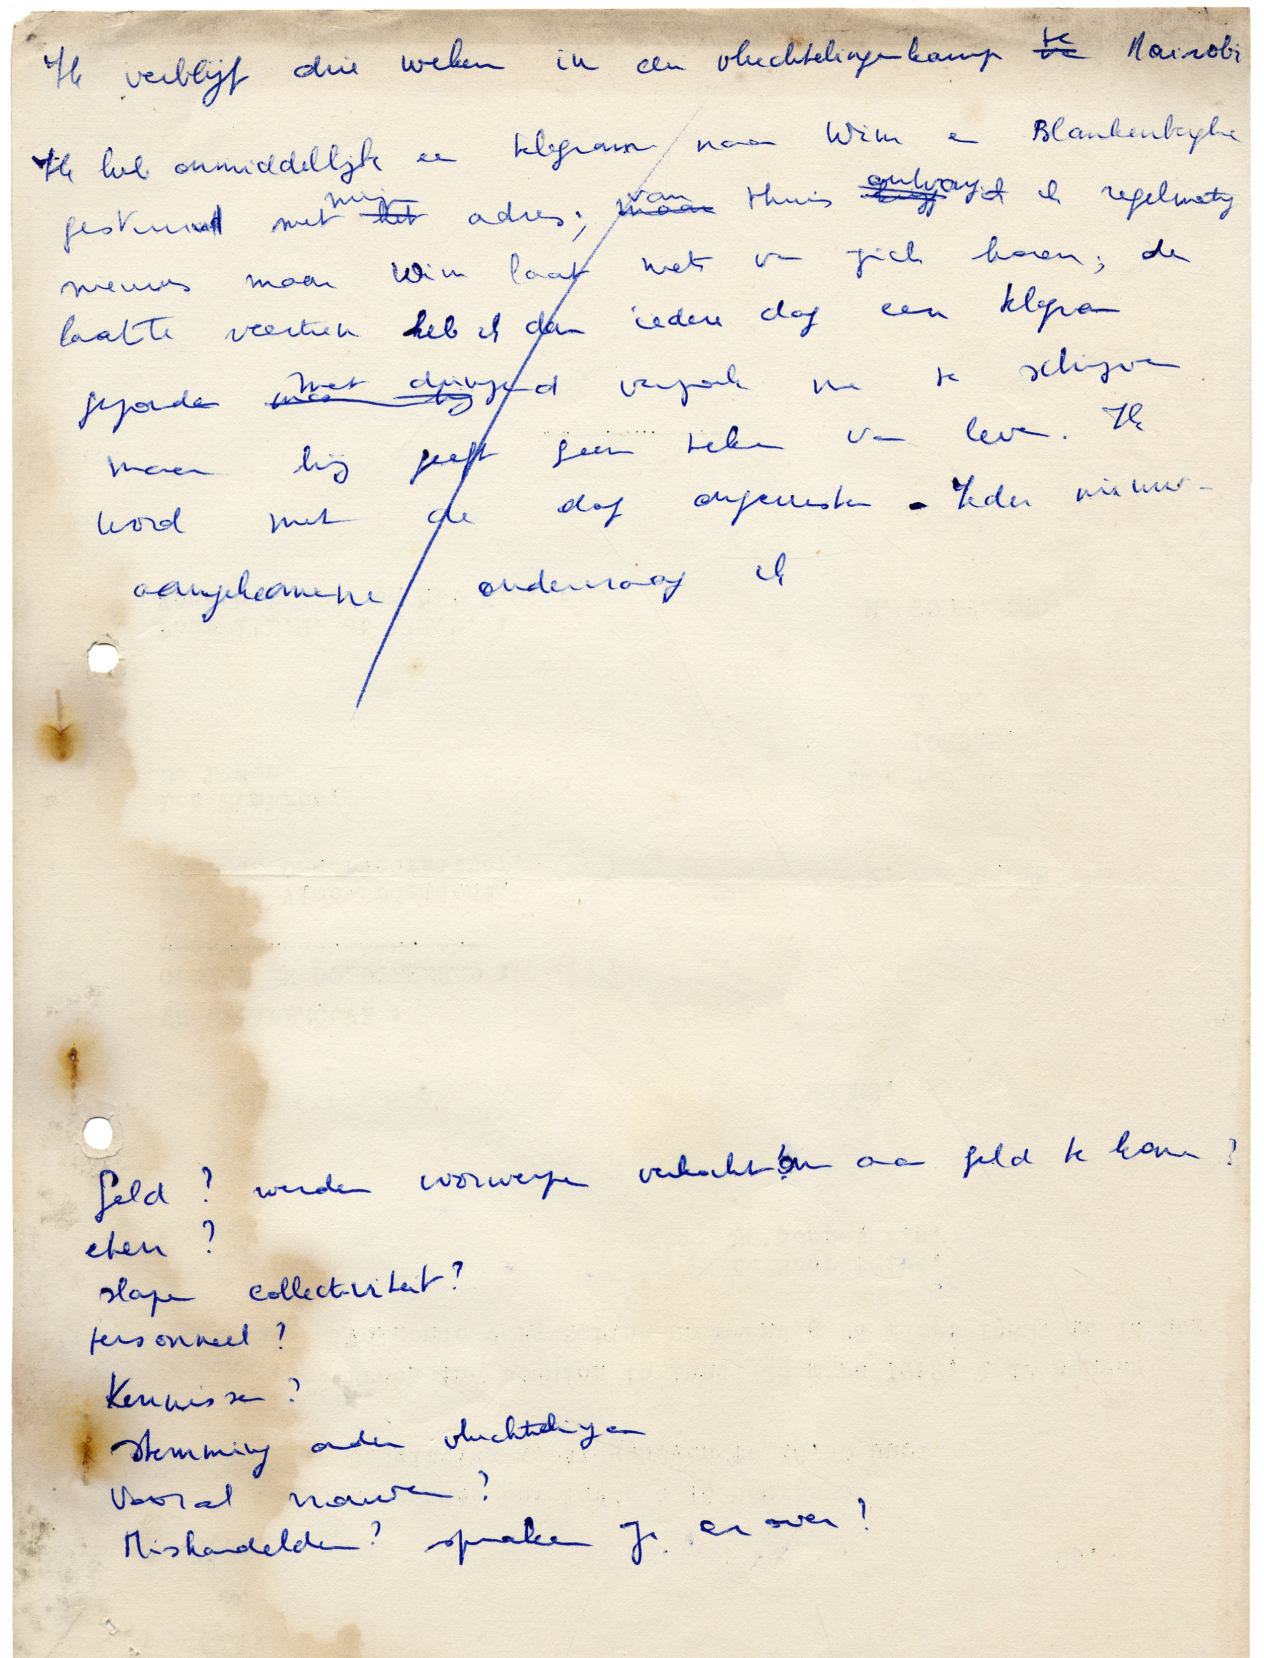 Ik verblijf drie weken in een vluchtelingenkamp te Nairobi
Ik heb onmiddellijk een telegram naar Wim en Blankenberghe
gestuurd met mijn adres; van thuis ontvang ik regelmatig
nieuws maar Wim laat niets van zich horen; de
laatste veertien heb ik dan iedere dag een telegram
gezonden met dringend verzoek me te schrijven
maar hij geeft geen teken van leven. Ik
word met de dag ongeruster. Ieder nieuw-
aangekomene ondervraag ik
Geld? werden voorwerpen verkocht om aan geld te komen?
eten?
slapen collectiviteit?
personneel?
Kennissen?
stemming onder vluchtelingen
Vooral vrouwen?
Mishandelden? spraken ze er over?